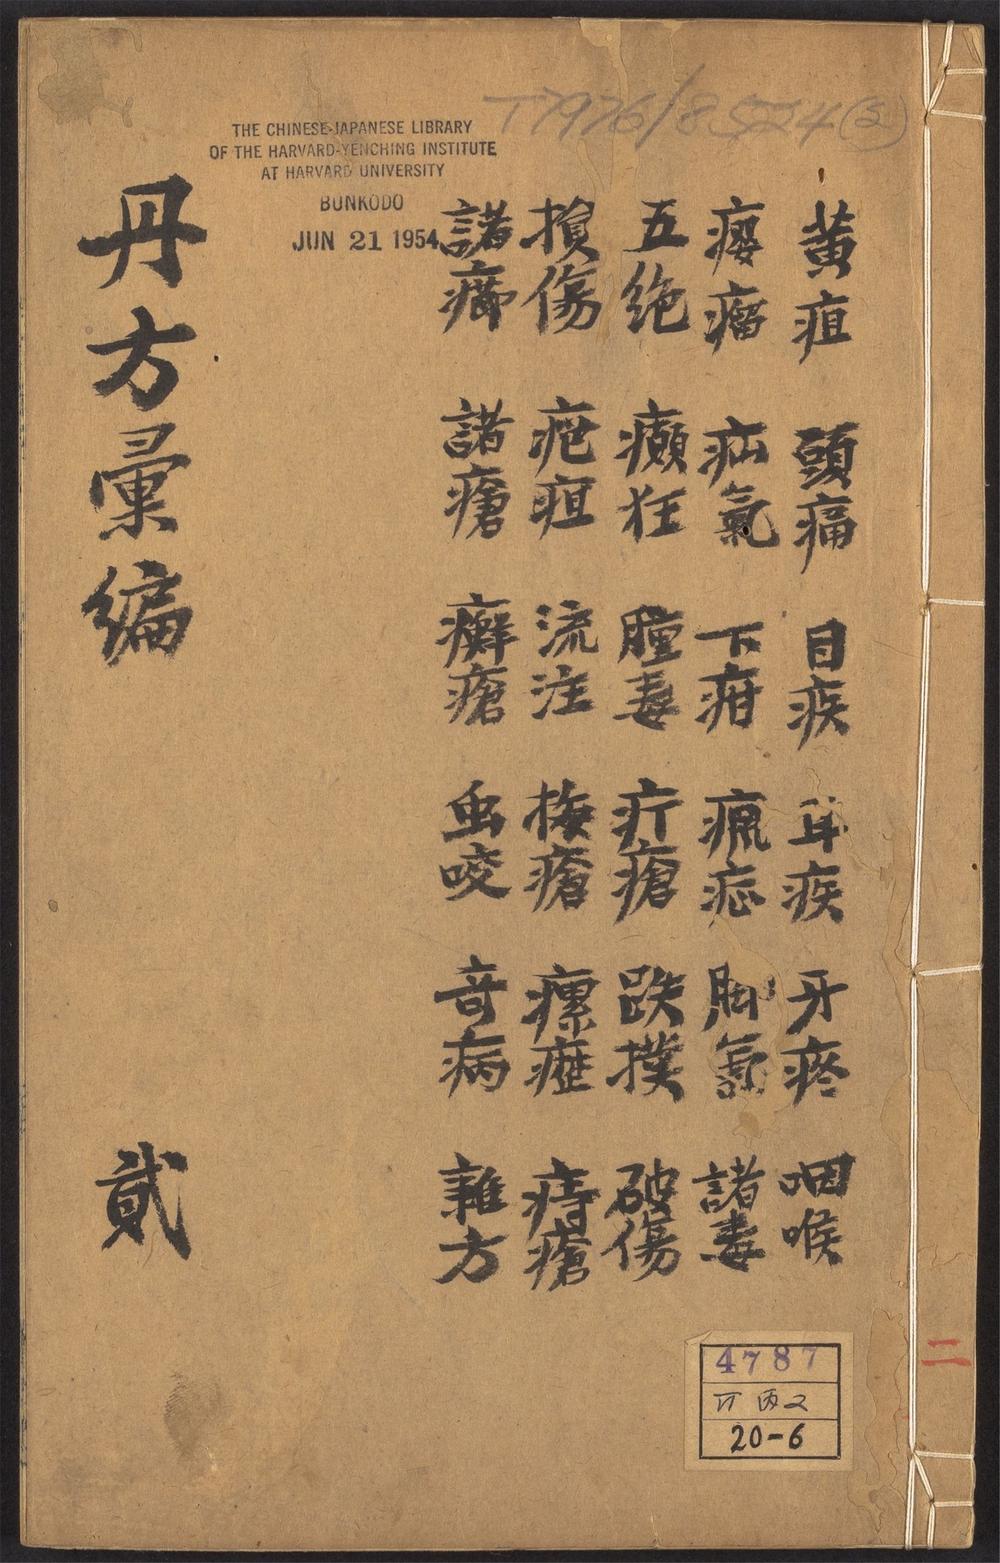 T7976/8524(2)
THE CHINESE-JAPANESE LIBRARY
OF THE HARVARD-YENCHING INSTITUTE
AT HARVARD UNIVERSITY
BUNKODO
JUN 21 1954
黃疸 頭痛 目疾 耳疾 牙疼 咽喉
癭瘤 疝氣 下疳 瘋症 脚氣 諸毒
五絶 癲狂 腫毒 疔瘡 跌撲 破傷
損傷 疤疽 流注 梅瘡 瘰癧 痔瘡
諸癤 諸瘡 癬瘡 虫咬 奇病 雜方
丹方彙編 貳
二
4787
20-6